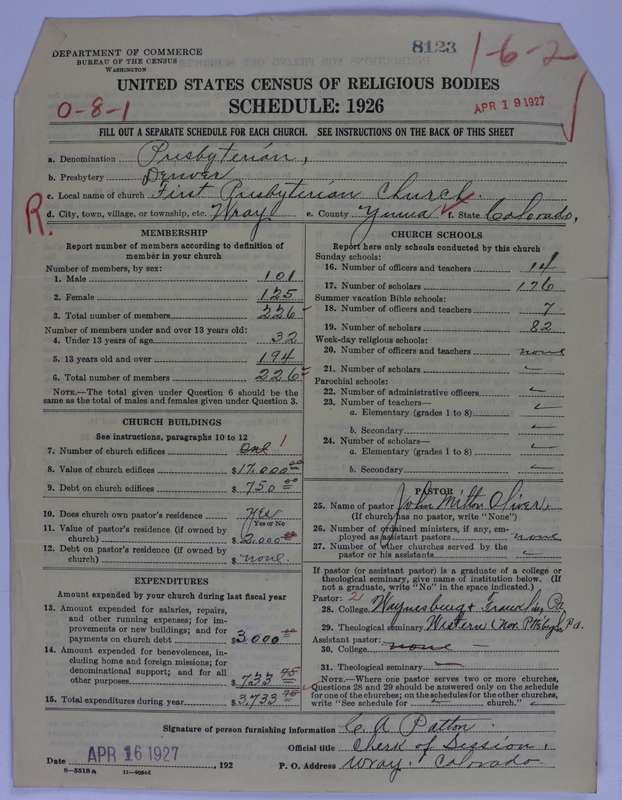 8123
1-6-2
DEPARTMENT OF COMMERCE
BUREAU OF THE CENSUS
WASHINGTON
UNITED STATES CENSUS OF RELIGIOUS BODIES
SCHEDULE: 1926
0-8-1
APR 19 1927
FILL OUT A SEPARATE SCHEDULE FOR EACH CHURCH. SEE INSTRUCTIONS ON THE BACK OF THIS SHEET
a. Denomination Presbyterian,
b. Presbytery Denver
c. Local name of church First Presbyterian Church.
R.
d. City, town, village, or township, etc. Wray e. County Yuma f. State Colorado,
MEMBERSHIP
Report number of members according to definition of member in your church
Number of members, by sex:
1. Male 101
2. Female 125
3. Total number of members 226
Number of members under and over 13 years old:
4. Under 13 years of age 32
5. 13 years old and over 194
6. Total number of members 226
NOTE.—The total given under Question 6 should be same as the total of males and females given under Question 3.
CHURCH BUILDINGS
See instructions, paragraphs 10 to 12
7. Number of church edifices One 1
8. Value of church edifices $17,000.00
9. Debt on church edifices $750.00
10. Does church own pastor's residence Yes
Yes or No
11. Value of pastor's residence (if owned by church) $2,000.00
12. Debt on pastor's residence (if owned by church) $none.
EXPENDITURES
Amount expended by your church during last fiscal year
13. Amount expended for salaries, repairs, and other running expenses; for improvements or new buildings; and for payments on church debt $3,000.00
14. Amount expended for benevolences, including home and foreign missions; for denominational support; and for all other purposes $733
15. Total expenditures during year $3,733
CHURCH SCHOOLS
Report here only schools conducted by this church
Sunday schools:
16. Number of officers and teachers 14
17. Number of scholars 176
Summer vacation Bible schools:
18. Number of officers and teachers 7
19. Number of scholars 82
Week-day religious schools:
20. Number of officers and teachers none
21. Number of scholars
Parochial schools:
22. Number of administrative officers
23. Number of teachers—
a. Elementary (grades 1 to 8)
b. Secondary
24. Number of scholars—
a. Elementary (grades 1 to 8)
b. Secondary
PASTOR
25. Name of pastor John Milton Oliver,
(If church has no pastor, write "None")
26. Number of ordained ministers, if any, employed as assistant pastors none
27. Number of other churches served by the pastor or his assistants
If pastor (or assistant pastor) is a graduate of a college or theological seminary, give name of institution below. (If not a graduate, write "No" in the space indicated.)
Pastor: 2
28. College Waynesburg + Franklin, Pa
29. Theological seminary Western (Nor. Pittsburgh Pa.
Assistant pastor:
30. College none
31. Theological seminary
NOTE.—Where one pastor serves two or more churches, Questions 28 and 29 should be answered only on the schedule for one of the churches; on the schedules for the other churches, write "See schedule for church."
Signature of person furnishing information C. A Patton.
Official title Clerk of Session,
Date APR 16 1927, 192 P. O. Address Wray, Colorado.
8-5518a